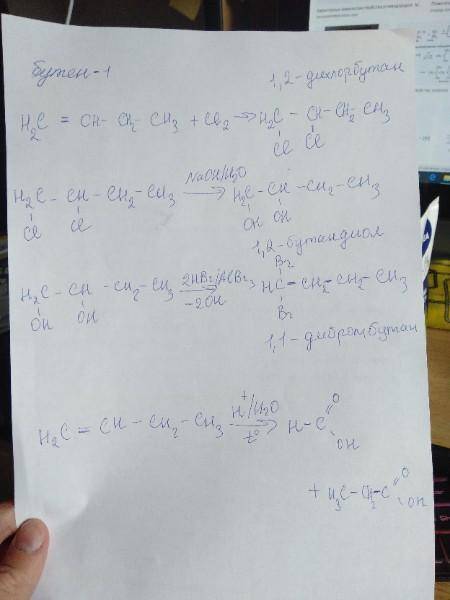 бутен-1
1,2-дихлорбутан
H₂C = CH - CH₂ - CH₃ + Cl₂ → H₂C - CH - CH₂ - CH₃
Cl Cl
H₂C - CH - CH₂ - CH₃ NaOH/H₂O → H₂C - CH - CH₂ - CH₃
Cl Cl OH OH
1,2-бутандиол
Br
H₂C - CH - CH₂ - CH₃ 2HBr/AlBr₃ → HC - CH₂ - CH₂ - CH₃
OH OH -2OH Br
1,1-дибромбутан
H₂C = CH - CH₂ - CH₃ H⁺/H₂O → H - C O
t° OH
+ H₃C - CH₂ - C O
OH